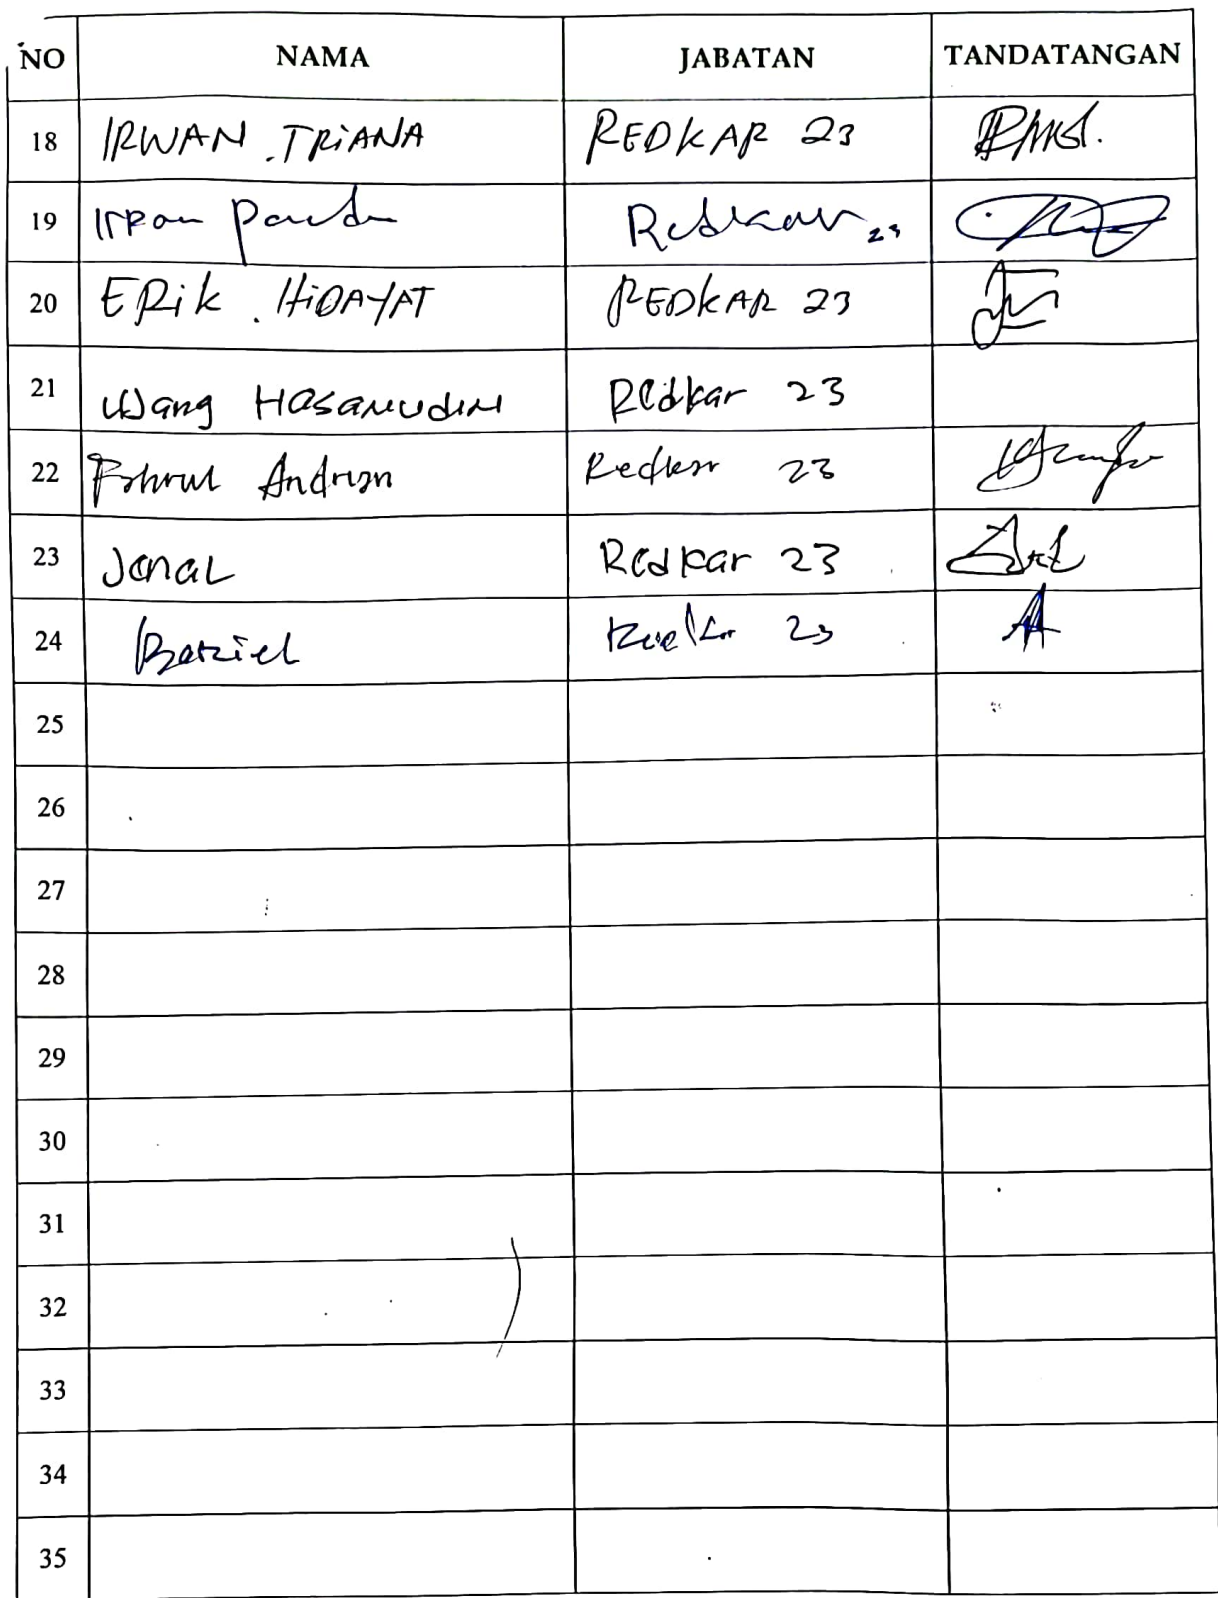 NO NAMA JABATAN TANDATANGAN
18 IRWAN .TRiANA REDKAR 23
19 Redkar 23
20 ERik . HiDAYAT REDKAR 23
21 Wang Hasanudin Redkar 23
22 Andrian Redkar 23
23 Jenal Redkar 23
24 23
25
26
27
28
29
30
31
32
33
34
35